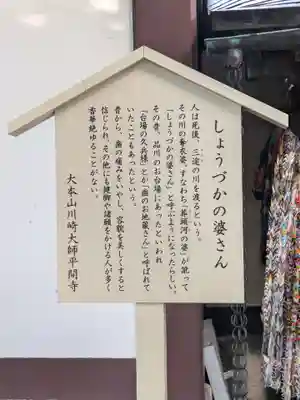 しょうづかの婆さん
人は死後、三途の川を渡るという。
その川の奪衣婆、すなわち「葬頭河の婆」が訛って
「しょうづかの婆さん」と呼ぶようになったらしい。
その昔、品川のお台場にあったといわれ
「台場の久兵様」とか「歯のお地蔵さん」と呼ばれて
いたこともあったという。
昔から、歯の痛みをいやし、容貌を美しくすると
信じられ、その他にも健脚や諸願をかける人が多く
香華絶ゆることがない。
大本山川崎大師平間寺